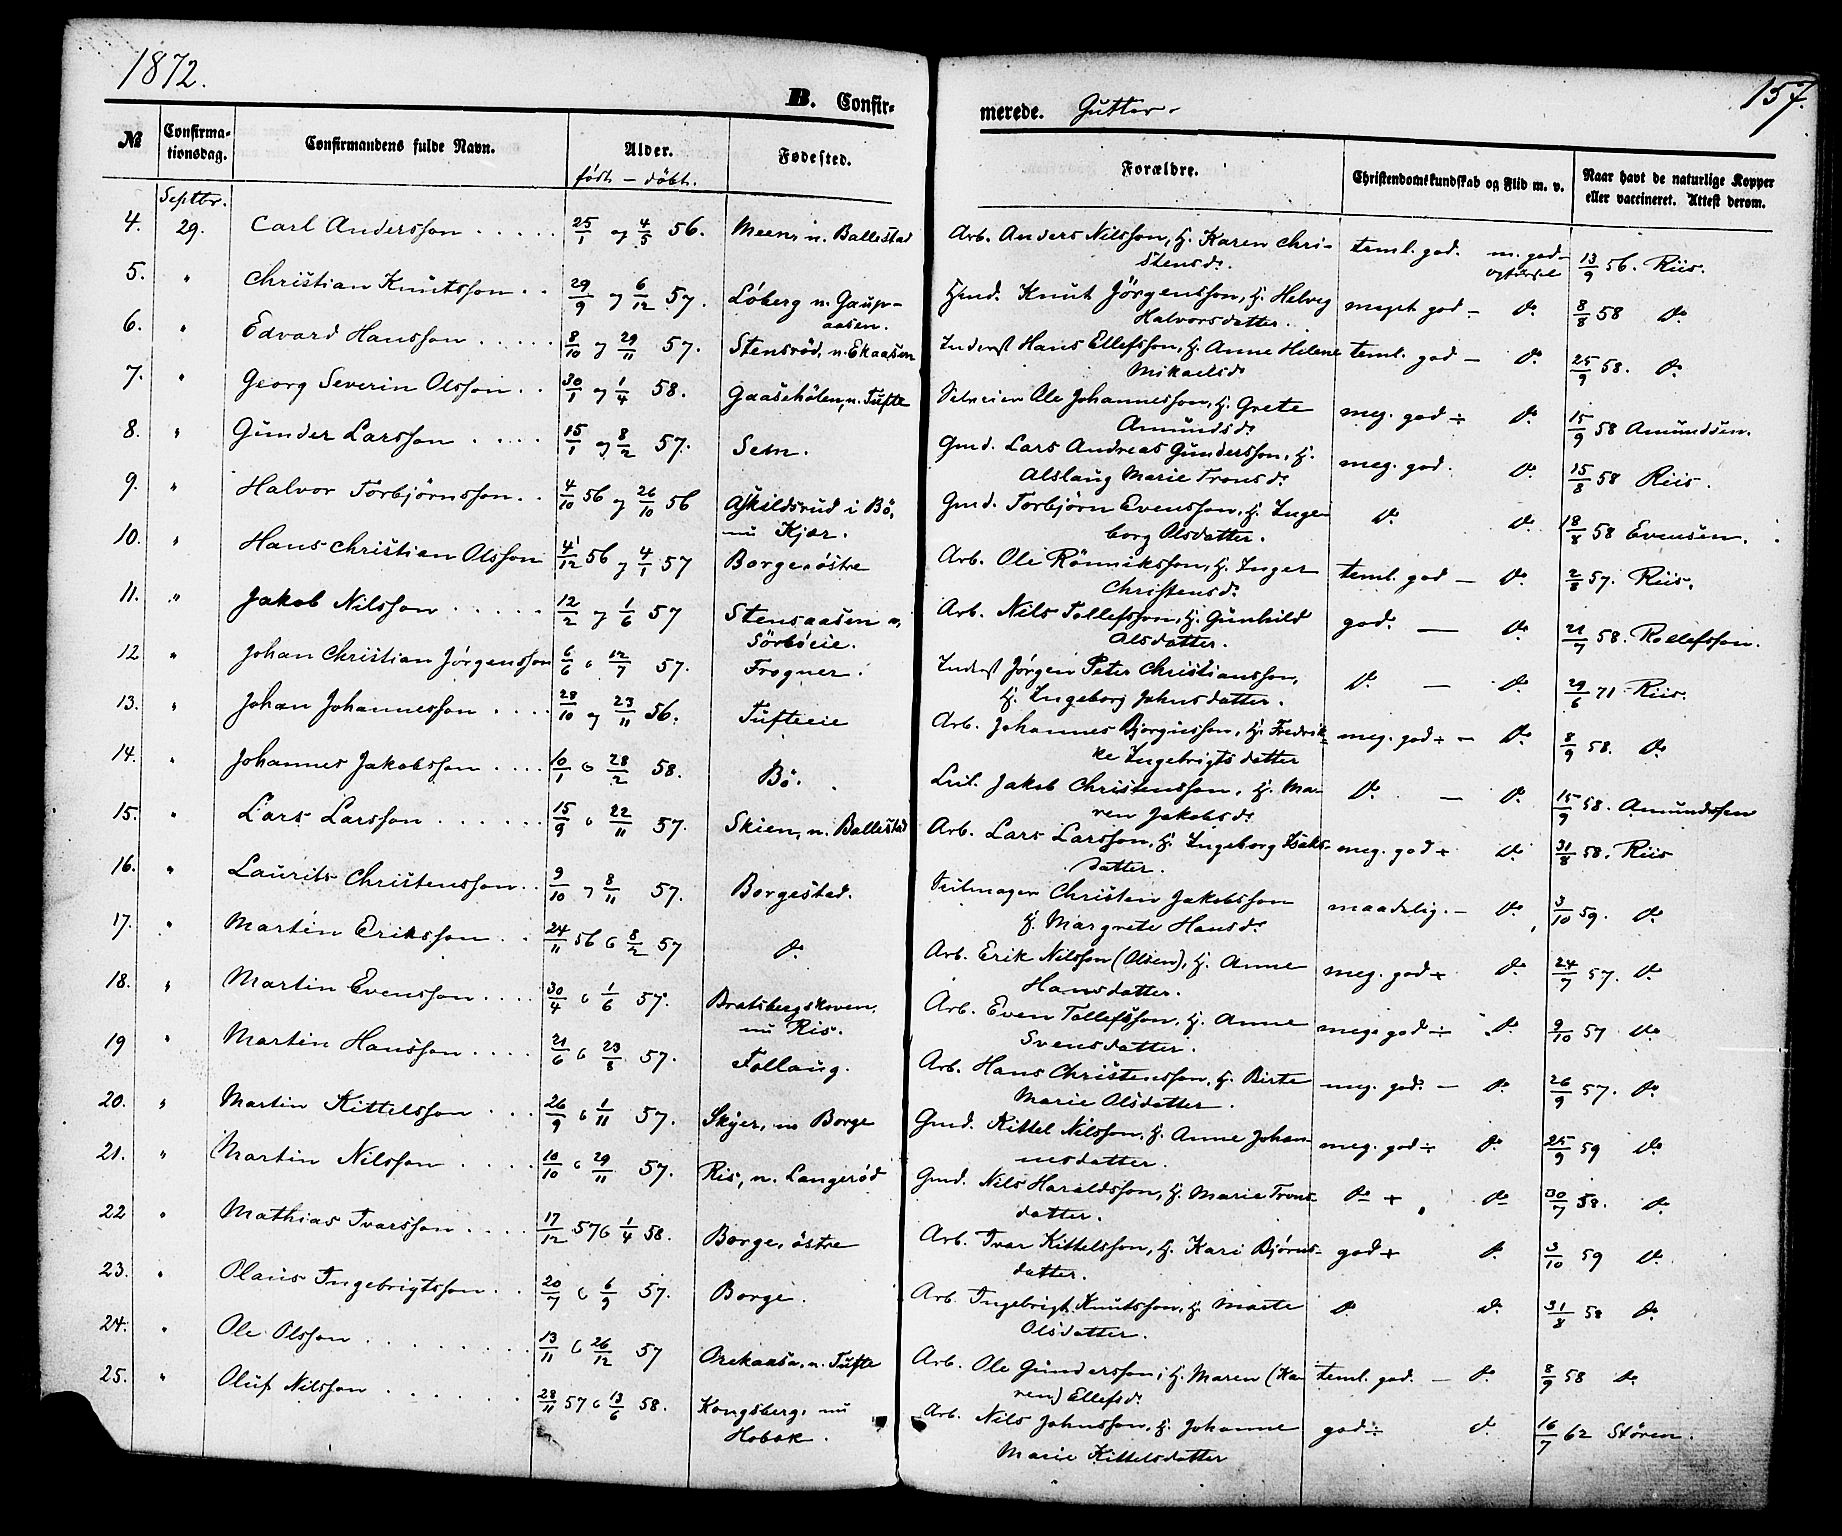 1872.
157.
B. Confir-
merede. Gutter.
№ Confirma-tionsdag. Confirmandens fulde Navn. Alder. Fødested. Forældre. Christendomskundskab og Flid m. v. Naar havt de naturlige Kopper eller vaccineret. Attest derom.
født – döbt.
Septbr.
4. 29. Carl Andersson 25/1 og 4/5 56. Meen, n. Ballestad Arb. Anders Nilsson, H. Karen Chri-stensdr. teml. god. m. god 13/9 56. Riis.
5. " Christian Knutsson 29/9 og 6/12 57. Löberg n. Gaup-aasen. Gmd. Knut Jörgensson, H. Helvig Halvorsdatter. meget god – do 8/8 58 do
6. " Edvard Hansson 8/10 og 29/11 57. Stensröd, n. Ekaasen Inderst Hans Ellefsson, H. Anne Helene Mikaelsdr teml. god – do 25/9 58. do
7. " Georg Severin Olsson 30/1 og 1/4 58. Gaasehölen, n. Tufte Selveier Ole Johannesson, H. Grete Amundsdr meg. god ÷ do 15/9 58 Amundsen.
8. " Gunder Larsson 15/1 og 8/2 57. Sem. Gmd. Lars Andreas Gundersson, H. Alslaug Marie Tronsdr meg. god. do 15/8 58 Riis.
9. " Halvor Torbjörnsson 4/10 56 og 26/10 56 Askildsrud i Bö, nu Kjær. Gmd. Torbjörn Evensson, H. Inge-borg Olsdatter. do do 18/8 58 Evensen.
10. " Hans Christian Olsson 4/12 56 og 4/1 57 Borge, östre Arb. Ole Rönniksson, H. Inger Christensdr. teml. god – do 2/8 57. Riis.
11. " Jakob Nilsson 12/2 og 1/6 57 Stensaasen n. Sörböeie. Arb. Nils Tollefsson, H. Gunhild Olsdatter. god. — do 21/7 58. Rollefsson.
12 " Johan Christian Jørgensson 6/6 o 12/7 57. Frogner. Inderst Jørgen Peter Christiansson, H. Ingeborg Johnsdatter. do — do 29/6 71 Riis.
13. " Johan Johannesson 28/10 og 23/11 56. Tufteeie Arb. Johannes Bjorgusson, H. Fredrik-ke Ingebrigtsdatter meg. god ÷ – do 8/9 58. do
14. " Johannes Jakobsson 10/1 o 28/2 58. Bö. Leil. Jakob Christensson, H. Ma-ren Jakobsdr do — do 15/9 58. Amundssen
15. " Lars Larsson 15/9 o 22/11 57. Skien, n. Ballestad Arb. Lars Larsson, H. Ingeborg Isaks-datter. meg. god + do 31/8 58. Riis
16. " Laurits Christensson 9/10 og 8/11 57. Borgestad. Seilmager Christen Jakobsson H. Margrete Hansdr maadelig. – do 3/10 59. do
17. " Martin Eriksson 24/11 56 o 8/2 57 do Arb. Erik Nilsson (Olsen), H. Anne Hansdatter. meg. god + do 24/7 57. do
18. " Martin Evensson 30/4 o 1/6 57. Bratsbergskoven, nu Ris. Arb. Even Tollefsson, H. Anne Svensdatter. meg. god ÷ do 9/10 57 do
19 " Martin Hansson 21/6 o 23/8 57. Follaug. Arb. Hans Christensson, H. Birte Marie Olsdatter. meg. god. – do 26/9 57. do
20. " Martin Kittelsson 26/9 o 1/11 57. Skyer, nu Borge Gmd. Kittel Nilsson, H. Anne Johan-nesdatter. meg. god ÷ do 25/9 59 do
21. " Martin Nilsson 10/10 o 29/11 57. Ris, n. Langeröd Gmd. Nils Haraldsson, H. Marie Trons-datter. do + do 30/7 58. do
22 " Mathias Ivarsson 17/12 57 o 1/4 58. Borge, östre Arb. Ivar Kittelsson, H. Kari Bjørns-datter. god + do 3/10 59 do
23. " Olaus Ingebrigtsson 20/7 o 6/9 57. Borge. Arb. Ingebrigt Knutsson, H. Marte Olsdatter. do do 31/8 58 do
24. " Ole Olsson 13/11 o 26/12 57 Orekaasa, n. Tufte Arb. Ole Gundersson, H. Maren (Ka-ren) Ellefsdr teml. god. – do 8/9 58 do
25. " Oluf Nilsson 28/11 57 o 13/6 58. Kongsberg, nu Hobæk. Arb. Nils Johnsson, H. Johanne Marie Kittelsdatter god ÷ do 16/7 62 Stören.